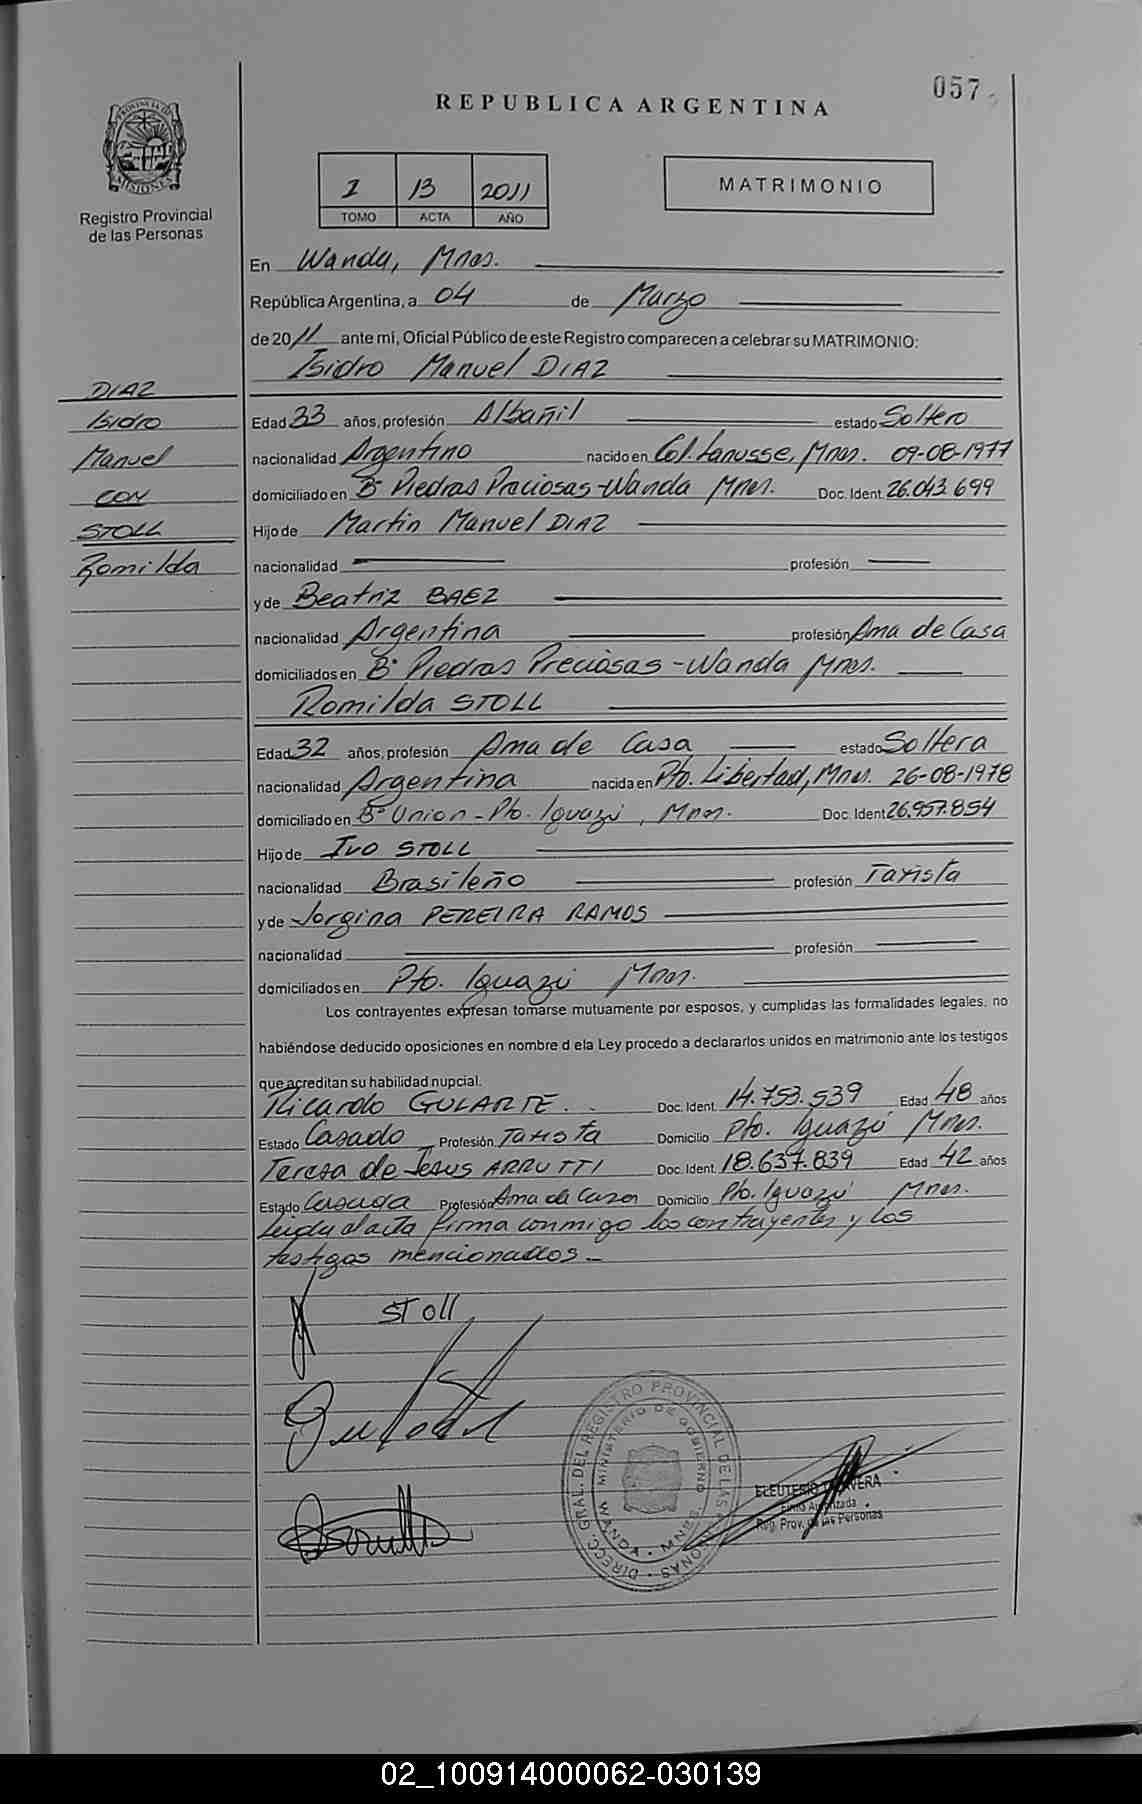 057
REPUBLICA ARGENTINA
PROVINCIA DE MISIONES
Registro Provincial
de las Personas
I 13 2011
TOMO ACTA AÑO
MATRIMONIO
DIAZ
Isidro
Manuel
CON
STOLL
Romilda
En Wanda, Mnes.
República Argentina, a 04 de Marzo
de 2011 ante mi, Oficial Público de este Registro comparecen a celebrar su MATRIMONIO:
Isidro Manuel DIAZ
Edad 33 años, profesión Albañil estado Soltero
nacionalidad Argentino nacido en Col. Lanusse, Mnes. 09-08-1977
domiciliado en B° Piedras Preciosas-Wanda Mnes. Doc. Ident. 26.043.699
Hijo de Martin Manuel DIAZ
nacionalidad profesión
y de Beatriz BAEZ
nacionalidad Argentina profesión Ama de Casa
domiciliados en B° Piedras Preciosas-Wanda Mnes.
Romilda STOLL
Edad 32 años, profesión Ama de Casa estado Soltera
nacionalidad Argentina nacida en Pto. Libertad, Mnes. 26-08-1978
domiciliado en B° Union-Pto. Iguazú, Mnes. Doc. Ident. 26.957.854
Hijo de Ivo STOLL
nacionalidad Brasileño profesión Taxista
y de Jorgina PEREIRA RAMOS
nacionalidad profesión
domiciliados en Pto. Iguazú Mnes.
Los contrayentes expresan tomarse mutuamente por esposos, y cumplidas las formalidades legales, no
habiéndose deducido oposiciones en nombre d ela Ley procedo a declararlos unidos en matrimonio ante los testigos
que acreditan su habilidad nupcial.
Ricardo GULARTE. Doc. Ident. 14.753.539 Edad 48 años
Estado Casado Profesión Taxista Domicilio Pto. Iguazú Mnes.
Teresa de Jesus ARRUTTI Doc. Ident. 18.637.839 Edad 42 años
Estado Casada Profesión Ama de Casa Domicilio Pto. Iguazú Mnes.
Leida el acta firma conmigo los contrayentes y los
testigos mencionados-
STOLL
DIRECC. GRAL. DEL REGISTRO PROVINCIAL DE LAS PERSONAS
MINISTERIO DE GOBIERNO
WANDA - MNES
Firma Autorizada
Reg. Prov. de las Personas
02_100914000062-030139